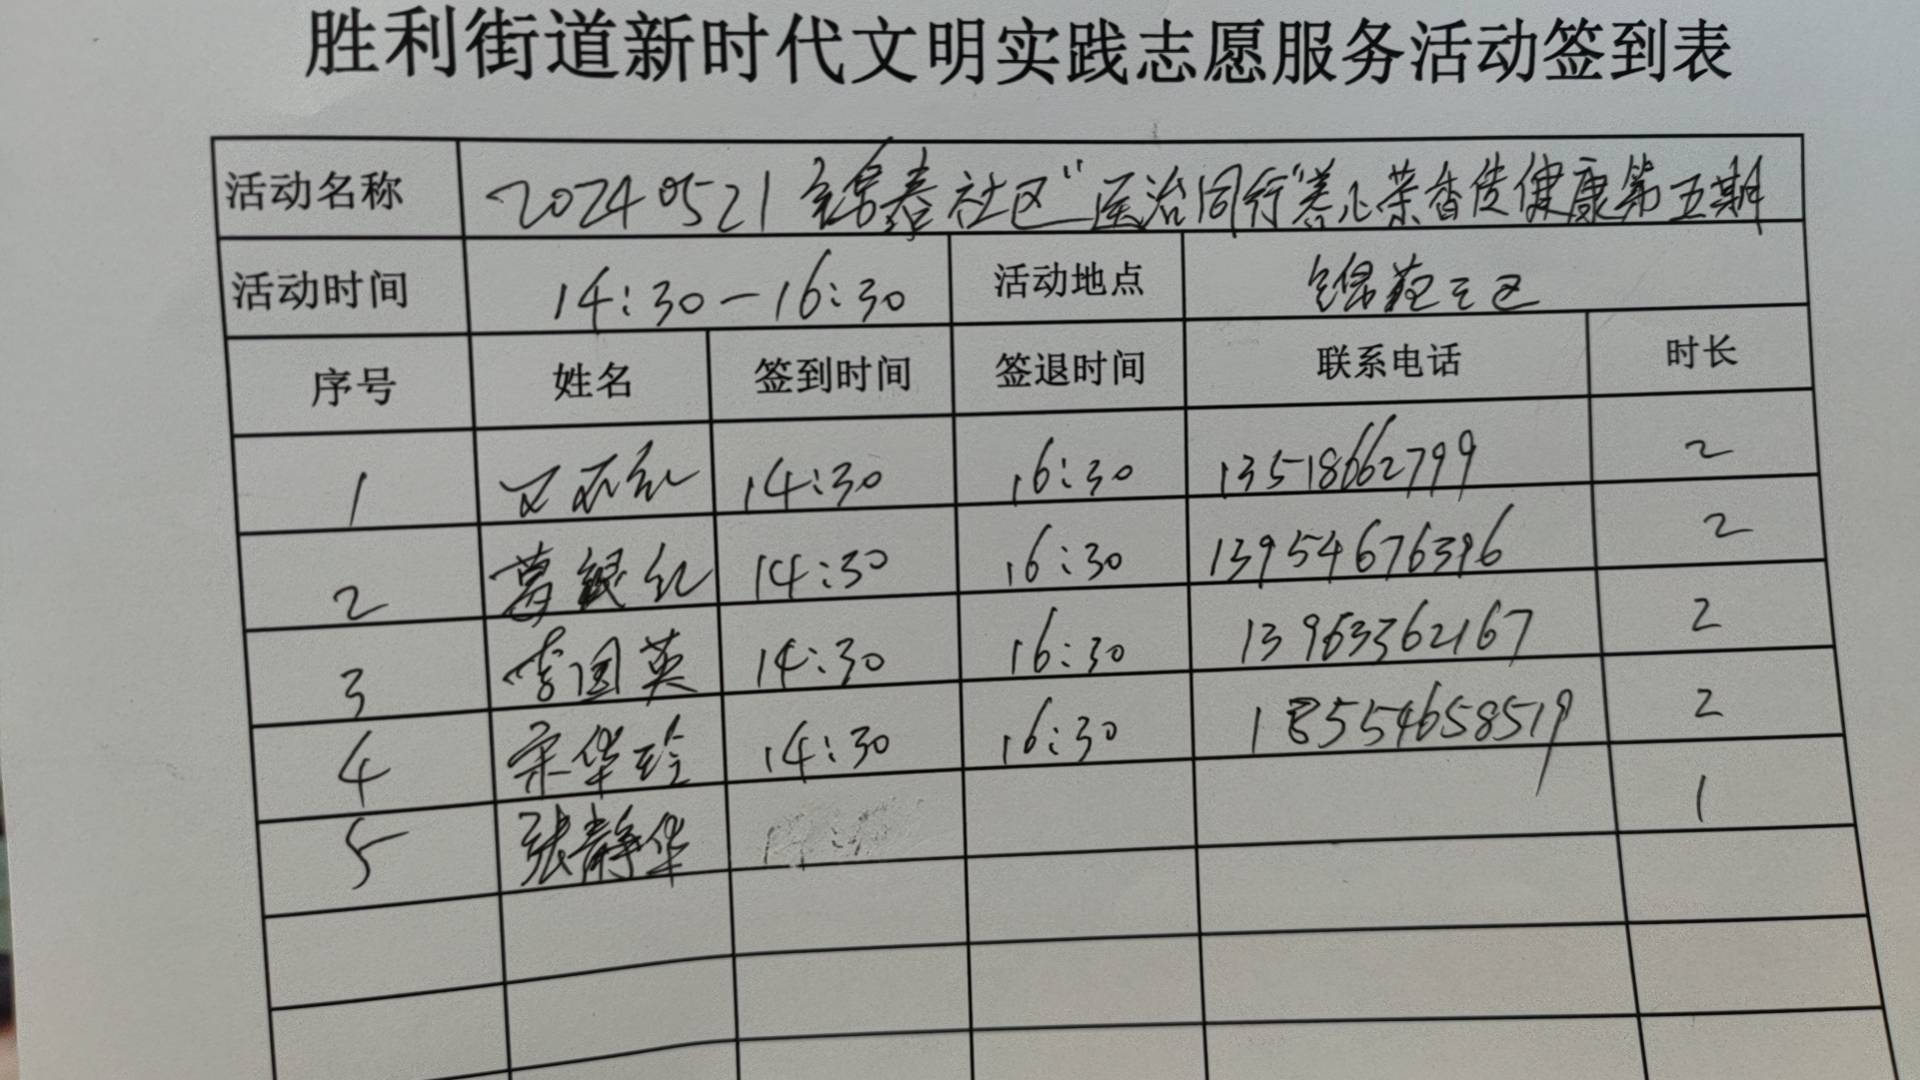 胜利街道新时代文明实践志愿服务活动签到表
活动名称 20240521 锦春社区"医治同行"善心荣香传健康第五期
活动时间 14:30-16:30 活动地点 锦苑三区
序号 姓名 签到时间 签退时间 联系电话 时长
1 14:30 16:30 13518662799 2
2 葛银红 14:30 16:30 13954676396 2
3 李国英 14:30 16:30 13963362167 2
4 宋华玲 14:30 16:30 18554658519 2
5 张静华 1